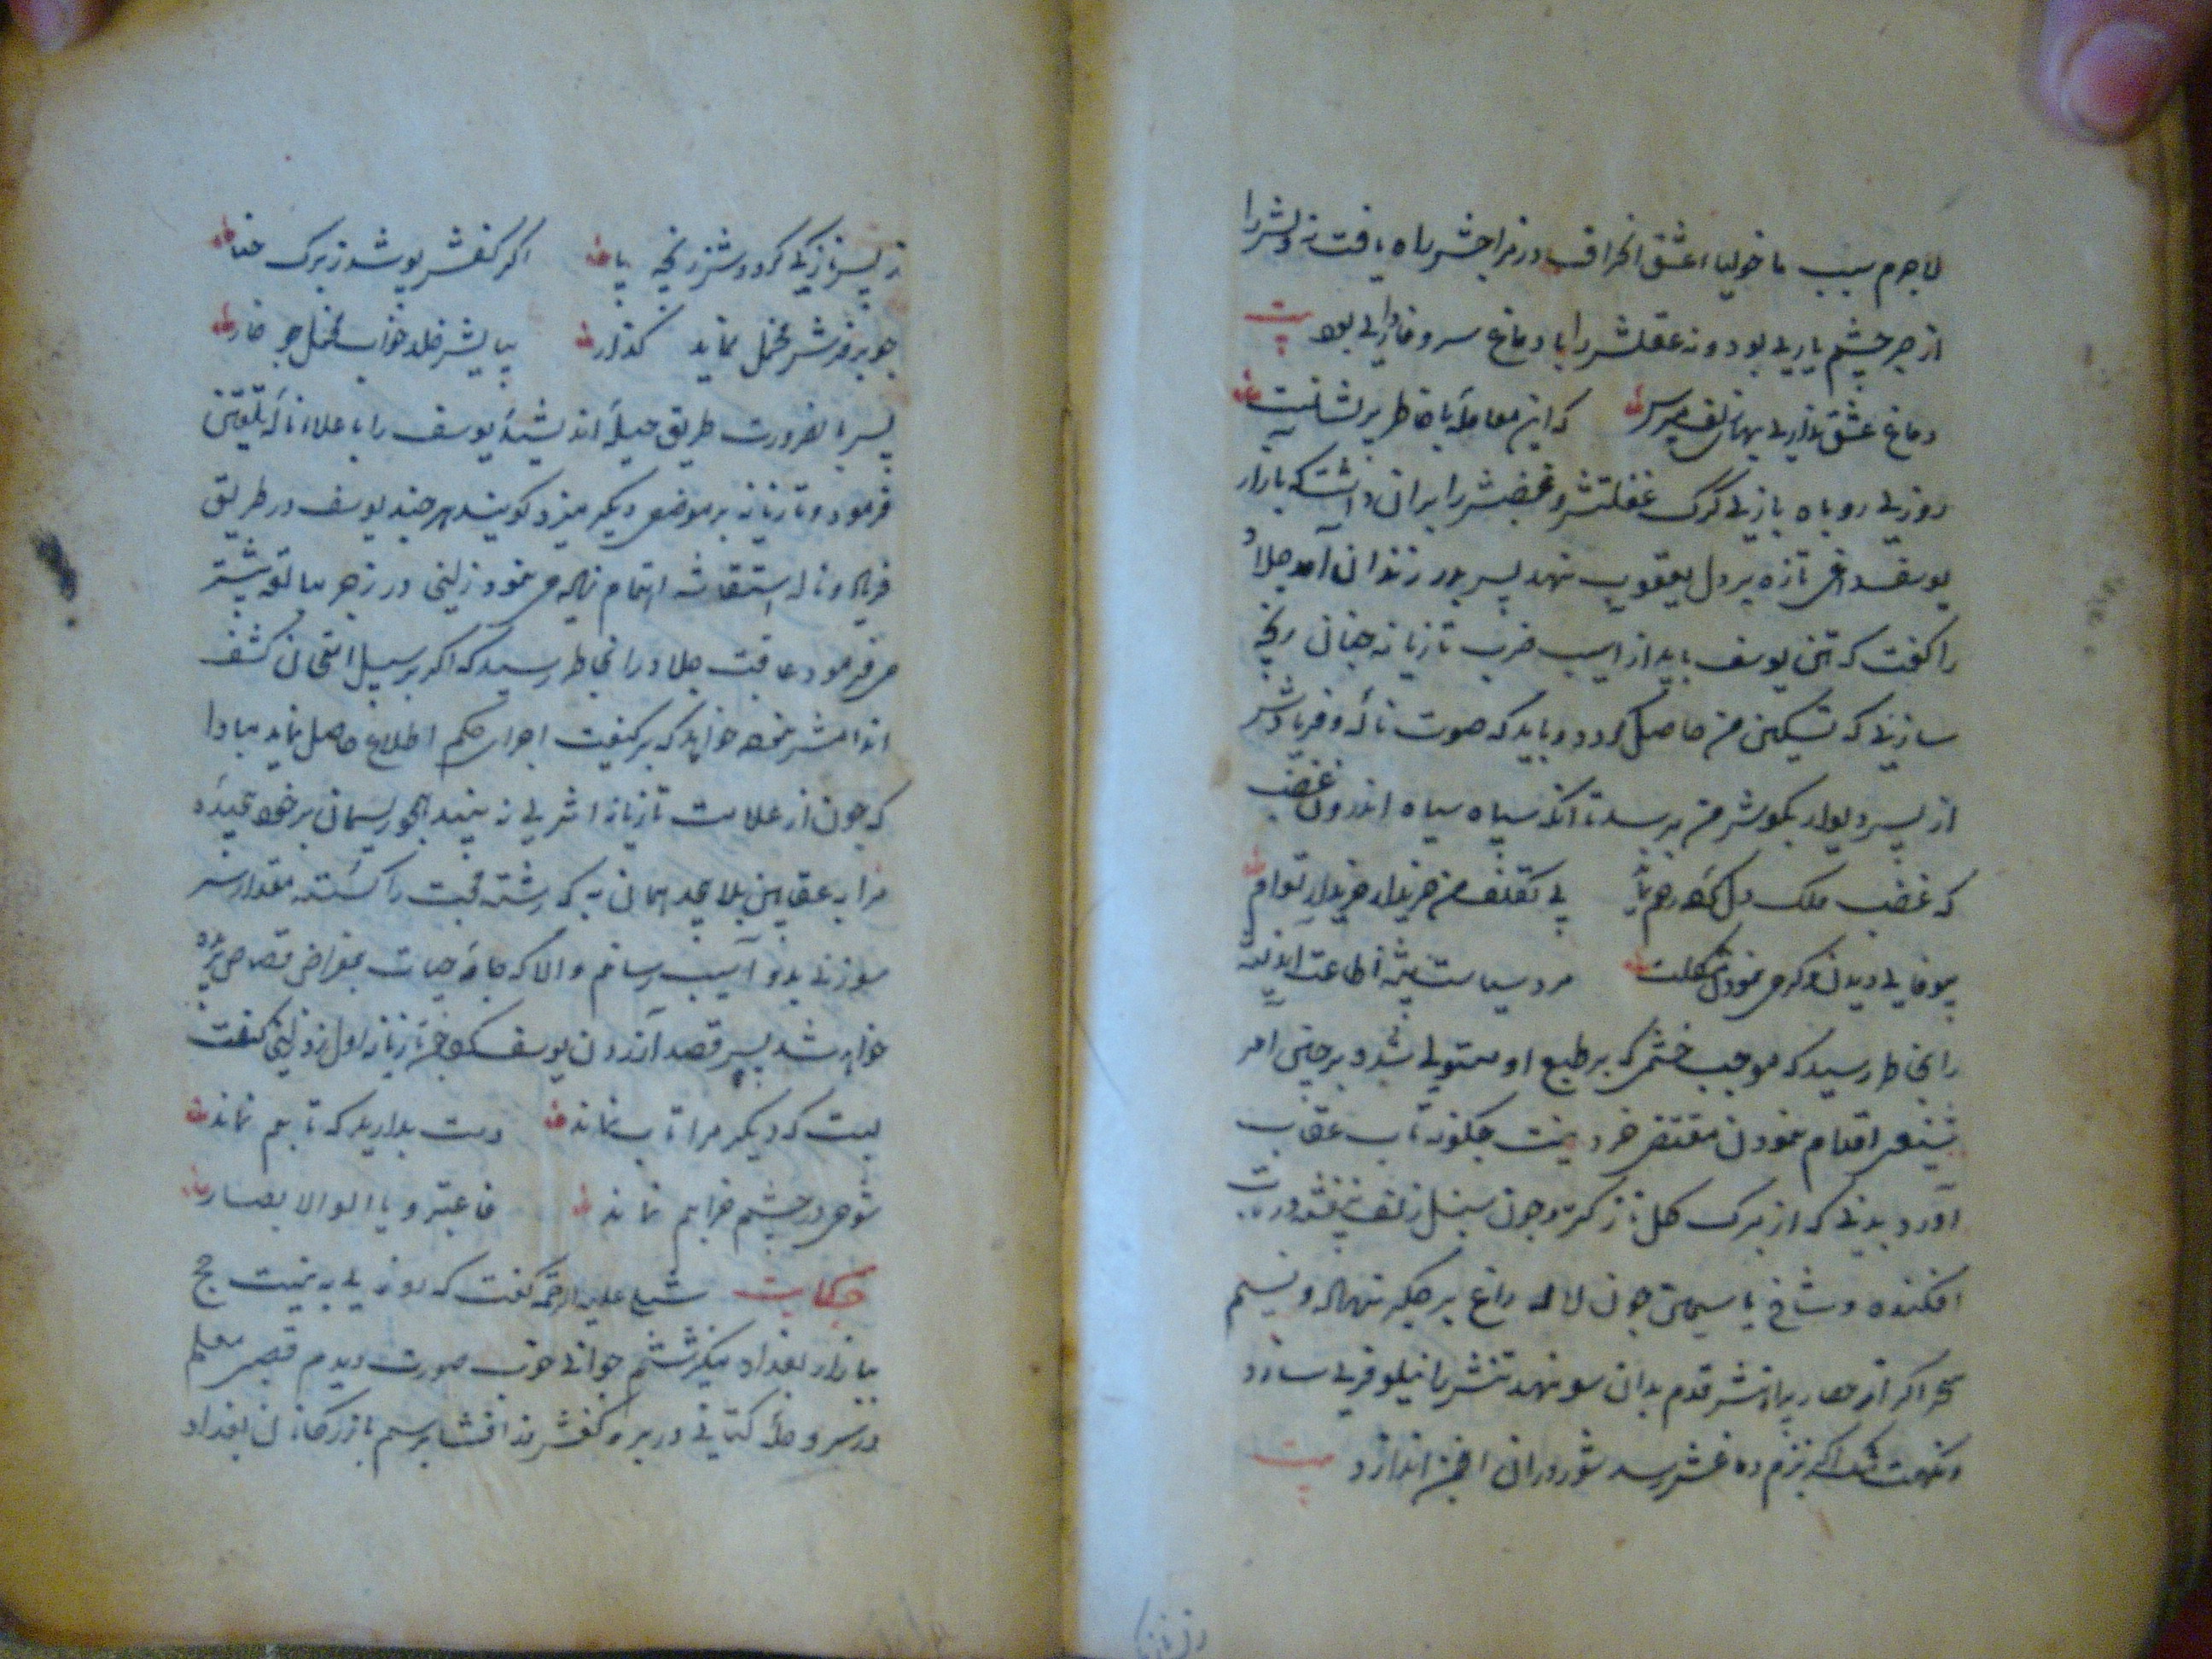 لاجرم بسبب ماخولیاء عشق انحراف در مزاجش راه یافت نه دلش را
از هر چشم یاری بود و نه عقلش را با دماغ سر وفاداری بود بیت
دماغ عشق نداری بهای زلف مپرس که این معامله با خاطر پریشانیست
روزی روباه بازی گرگ غفلتش و غضبش را بران داشت که بازار
یوسف داغی تازه بر دل یعقوب نهد پس بدر زندان آمد جلاد
را گفت که تن یوسف باید از آسیب ضرب تازیانه چنان رنجه
سازی که تسکین من حاصل گردد و باید که صوت ناله و فریادش
از پس دیوار بگوش من برسد تا آنکه سیاه سیاه اندرون غضب
که غضب ملک دل رحم بی تکلف من خریدار خریدار توام
بیوفایی دیدن و کرم نمودن مشکلست مرد سیاست پیشه اطاعت اندیشه
را بخاطر رسید که موجب خشمی که بر طبع او مستولی شد و بر چنین امر
شنیعی اقدام نمودن مقتضی خرد نیست چگونه تاب عقاب
آورد بدنی که از برک گل نازکتر و چون سنبل زلف بنفشه در تاب
افکنده و شاخ یاسمین چون لاله داغ بر جگر نهاده و نسیم
سحر اگر از حصار پیراهنش قدم بدان سو نهد تنش را نیلوفری سازد
و نکهت مشک اگر ببزم دماغش رسد شور در ان انجمن اندازد بیت
ز بس نازکی گردوش رنجه پا اگر کفش پوشد ز برک حنا
چو بر فرش مخمل نماید گذار بپایش خلد خواب مخمل چو خار
پس بالضرورت طریق حیله اندیشید یوسف را باعلاء ناله تلقین
فرمود و تازیانه بر موضعی دیگر میزد گویند هر چند یوسف در طریق
فریاد و ناله استغاثه اهتمام تمام می نمود زلیخا در زجر مبالغه بیشتر
می فرمود عاقبت جلاد را بخاطر رسید که اگر بر سبیل امتحان کشف
اندامش نموده خواهد که بر کیفیت اجراء حکم اطلاع حاصل نماید مبادا
که چون از علامت تازیانه اثری نه بیند همچو ریسمان بر خود پیچیده
مرا به عقابین بلا پیچد همان به که رشته محبت را گسسته مقدار سر
سوزنی بدو آسیب رسانم و الا که جامه حیات بمقراض قصاص بریده
خواهد شد پس قصد آزردن یوسف کرد ضرب تازیانه اول بزد زلیخا گفت
بیت که دیگر مرا تاب نماند دست بدارید که تابم نماند
شوخی در چشم خرابم نماند فاعتبروا یا اولوالابصار
حکایت شبلی علیه الرحمه گفت که روزی به نیت حج
ببازار بغداد میگذشتم جوانی خوب صورت دیدم قصب معلم
در سر و حله کتانی در بر و کفش زرافشان برسم بازرگانان بغداد